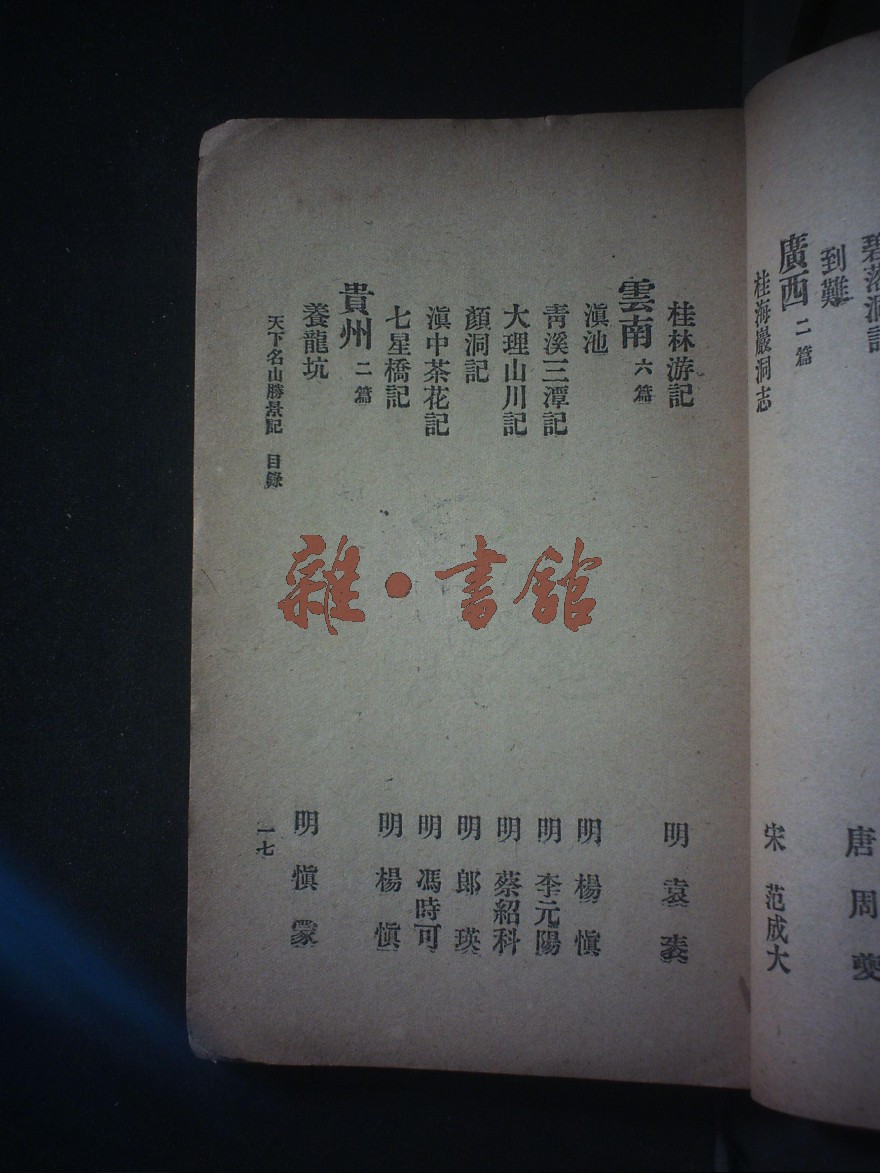 碧落洞記 唐 周夔
到難
廣西 二篇
桂海巖洞志 宋 范成大
桂林游記 明 袁袠
雲南 六篇
滇池 明 楊慎
青溪三潭記 明 李元陽
大理山川記 明 蔡紹科
顏洞記 明 郎瑛
滇中茶花記 明 馮時可
七星橋記 明 楊慎
貴州 二篇
養龍坑 明 慎蒙
天下名山勝景記 目錄 一七
雜·書館